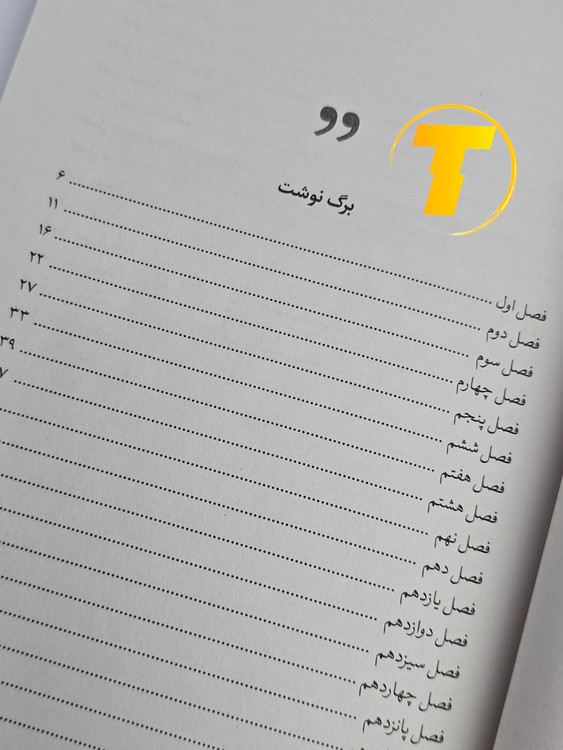 T
”
برگ نوشت
فصل اول ........ ۶
فصل دوم ........ ۱۱
فصل سوم ........ ۱۶
فصل چهارم ........ ۲۲
فصل پنجم ........ ۲۷
فصل ششم ........ ۳۳
فصل هفتم ........ ۳۹
فصل هشتم ........
فصل نهم ........
فصل دهم ........
فصل یازدهم ........
فصل دوازدهم ........
فصل سیزدهم ........
فصل چهاردهم ........
فصل پانزدهم ........